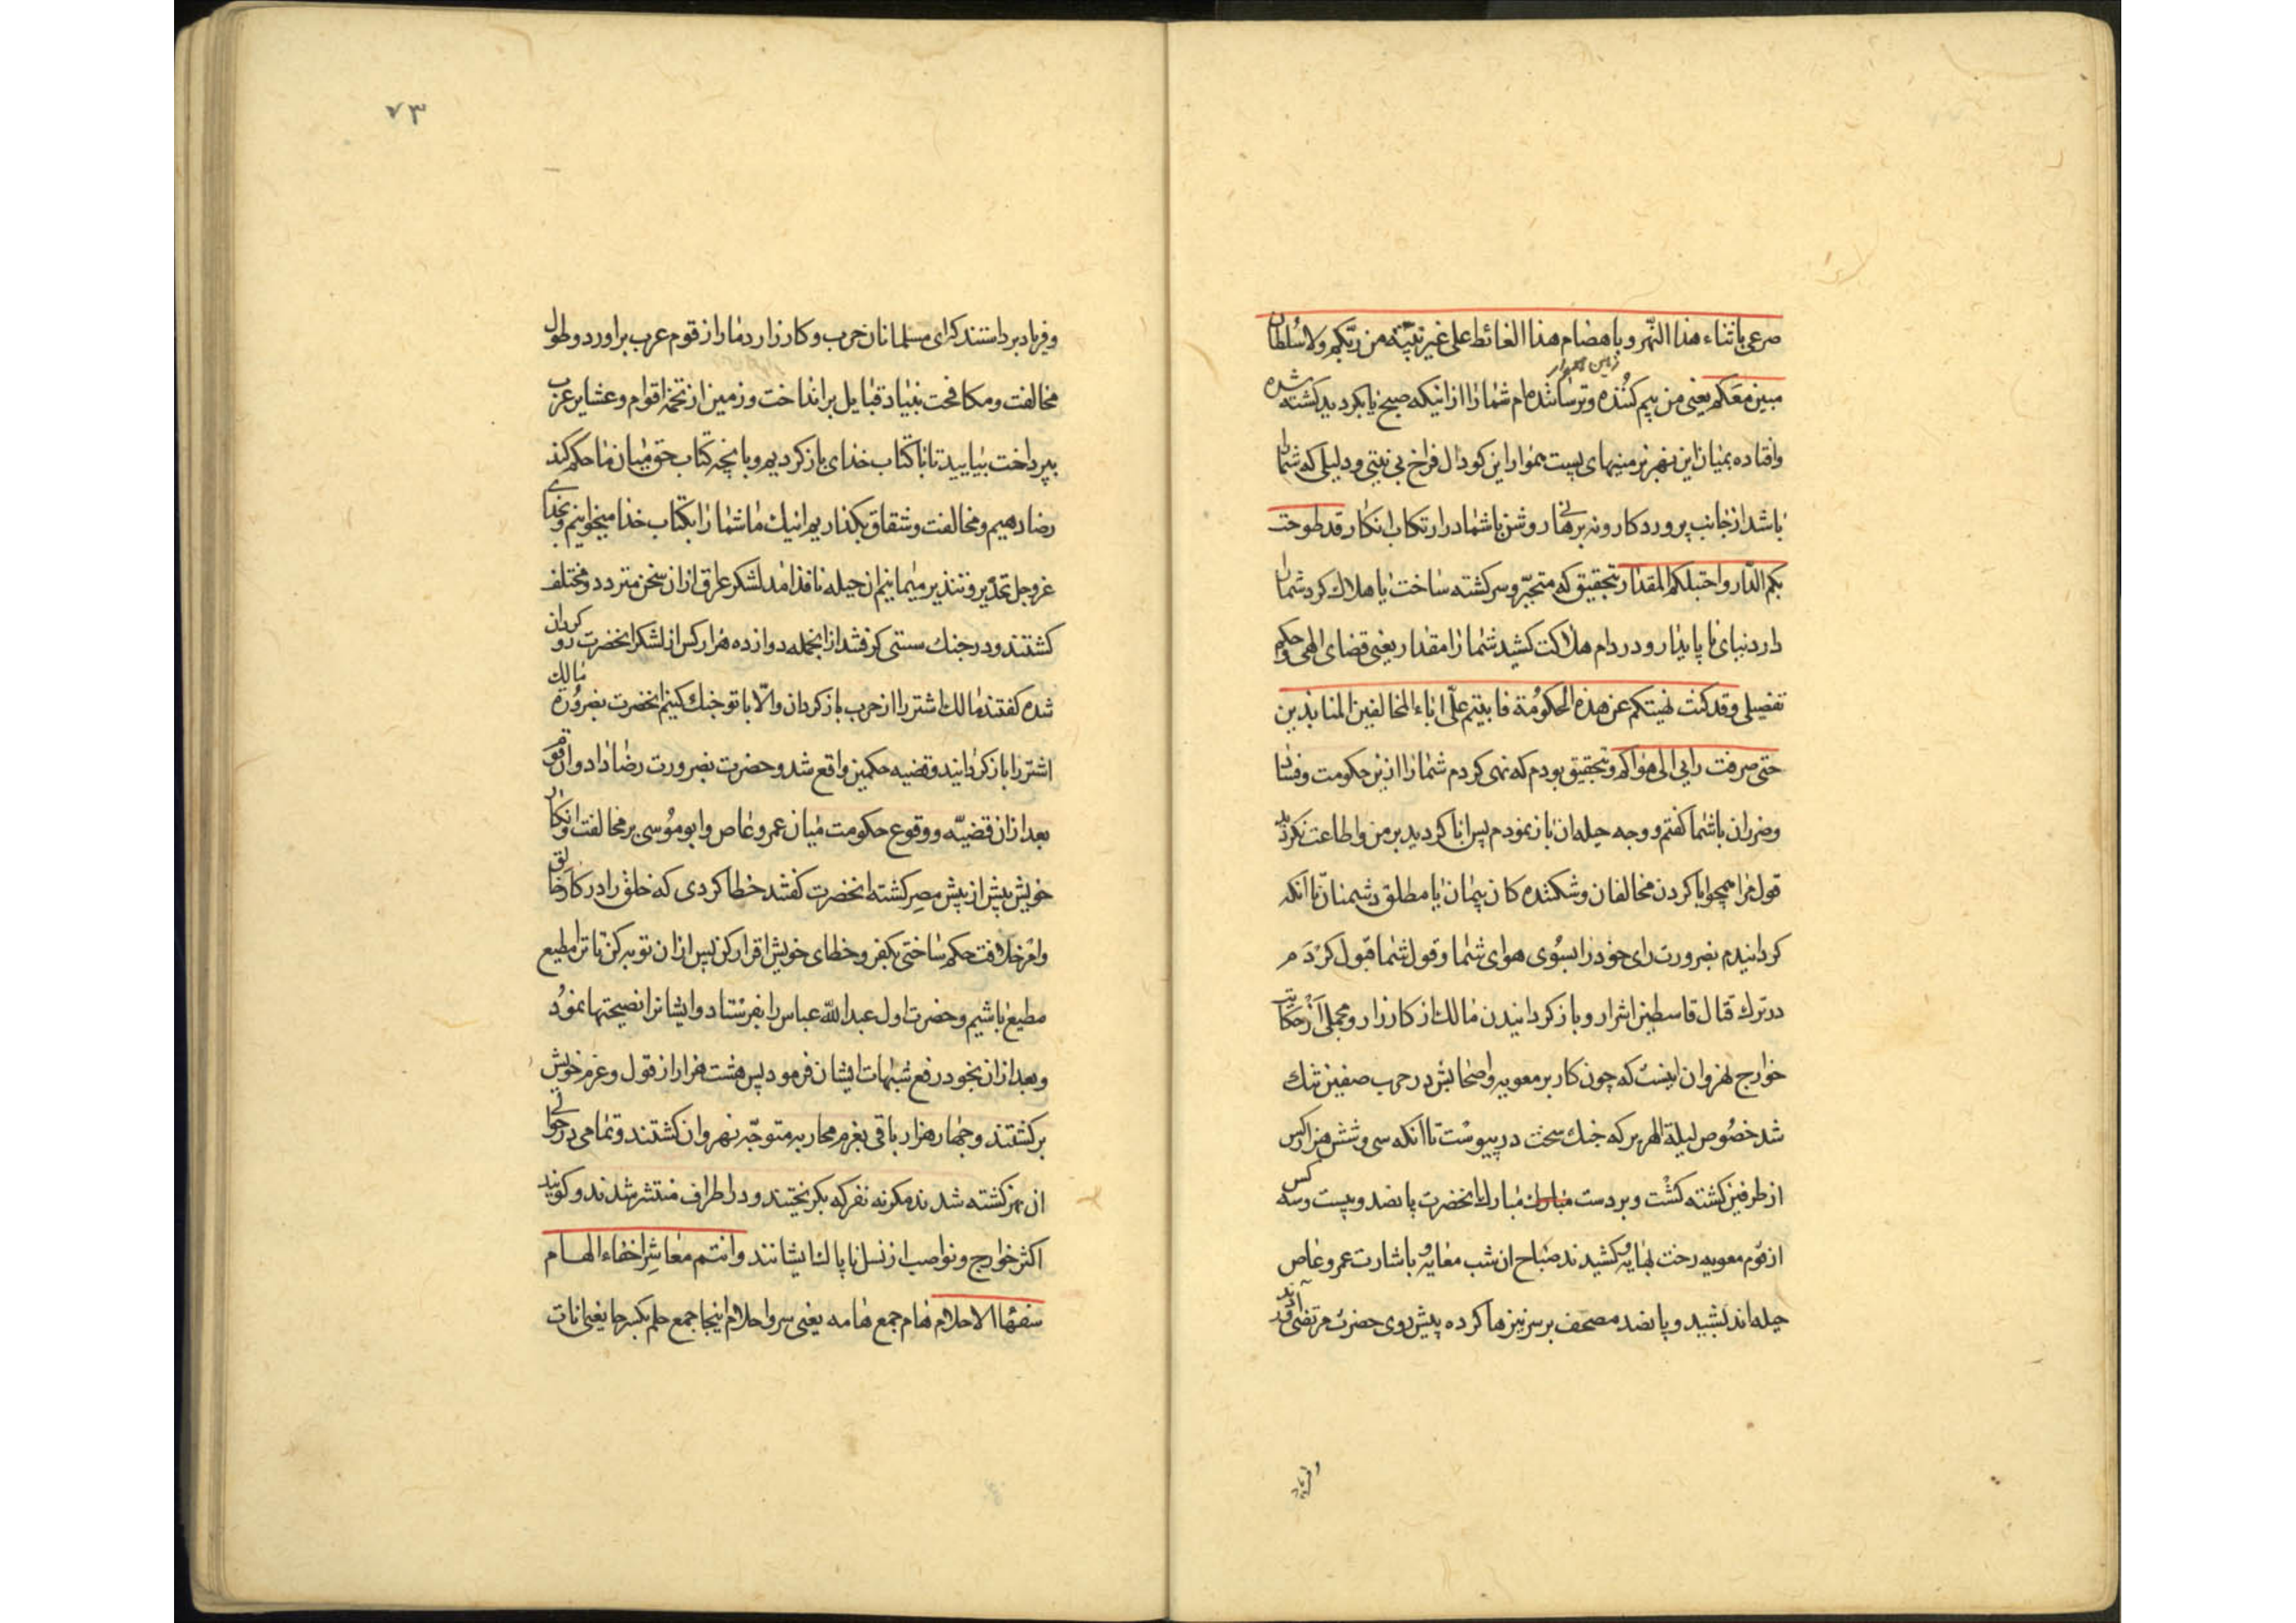 صرعی باثناء هذا النهر و باهضام هذا الغائط علی غیر بیّنه من ربّکم ولا سُلطان
زمین هموار
مبین معَکم یعنی من بیم کننده و ترساننده‌ام شما را از انیکه صبح نا بکردید کشته شده
وافتاده بمیان این نهر بزمینهای پست هموار این کودال فراخ بی بینتی و دلیلی که شما را
باشد از جانب پروردکار و نه برهانی روشن با شما در ارتکاب انکار قد طوحت
بکم الدّار واحتبلکم المقدار بتحقیق که متحیّر و سرکشته ساخت یا هلاک کرد شما را
دار دنیای نا پایدار و در دام هلاکت کشید شما را مقدار یعنی قضای الهی و حکم
تفصیلی و قد کنت نهیتکم عن هذه الحکومة فابیتم علیّ اباء المخالفین المنابذین
حتی صرفت رایی الی هواکم و بتحقیق بودم که نهی کردم شما را ازین حکومت و فساد
و ضرر ان با شما کفتم و وجه حیله ان باز نمودم پس ابا کردید بر من و اطاعت نکردید
قول مرا همچو ابا کردن مخالفان و شکننده کان پیمان یا مطلق دشمنان تا انکه
کردانیدم بضرورت رای خود را بسوی هوای شما و قول شما قبول کردم
در ترک قتال قاسطین اشرار و باز کردانیدن مالک از کارزار و مجملی از حکایت
خوارج نهروان اینست که چون کار بر معویه و اصحابش در حرب صفین تنک
شد خصوص لیلة الهریر که جنک سخت در پیوست تا انکه سی و شش هزار کس
از طرفین کشته کشت و بر دست مبارک مبارک انحضرت پانصد و بیست و سه کس
از قوم معویه رخت بهاویه کشیدند صباح ان شب معاویه باشارت عمرو عاص
حیله اندیشید و پانصد مصحف بر سر نیزها کرده پیش روی حضرت مرتضی اوردند
و فریاد
۷۳
و فریاد برداشتند که ای مسلمانان حرب و کارزار دمار از قوم عرب براورد و طول
مخالفت و مکافحت بنیاد قبایل برانداخت و زمین از تخمه اقوام و عشایر عرب
بپرداخت بیایید تا با کتاب خدای باز کردیم و بانچه کتاب حق میان ما حکم کند
رضا دهیم و مخالفت و شقاق بکذاریم اینک ما شما را بکتاب خدا میخوانیم و بخدای
عزوجل تحذیر و تنذیر مینماییم ان حیله نافذ امد لشکر عراق ازان سخن متردد و مختلف
کشتند و در جنک سستی کرفتند از انجمله دوازده هزار کس از لشکر انحضرت رو کردان
شده کفتند مالک اشتر را از حرب باز کردان والّا با تو جنک کنیم انحضرت بضرورة مالک
اشتر را باز کردانیدند و قضیه حکمین واقع شد و حضرت بضرورت رضا داد و ان قوم
بعد ازان قضیّه و وقوع حکومت میان عمرو عاص و ابوموسی بر مخالفت و انکار
خویش بیش از پیش مصر کشته انحضرت کفتند خطا کردی که خلق را در کار خالق
و امر خلافت حکم ساختی بکفر و خطای خویش اقرار کن پس ازان توبه کن تا ترا مطیع
مطیع باشیم و حضرت اول عبدالله عباس را بفرستاد و ایشانرا نصیحتها نمود
و بعد ازان بخود رفع شبهات ایشان فرمود پس هشت هزار از قول و عزم خویش
برکشتند و چهار هزار باقی بعزم محاربه متوجّه نهروان کشتند و تمامی در حوالی
ان نهر کشته شدند مکر نه نفر که بکریختند و در اطراف منتشر شدند و کویند
اکثر خوارج و نواصب از نسل ناپاک ایشانند وانتم معاشِر اخفاء الهام
سفهاء الاحلام هام جمع هامه یعنی سر و احلام اینجا جمع حلم بکسر حا یعنی انات